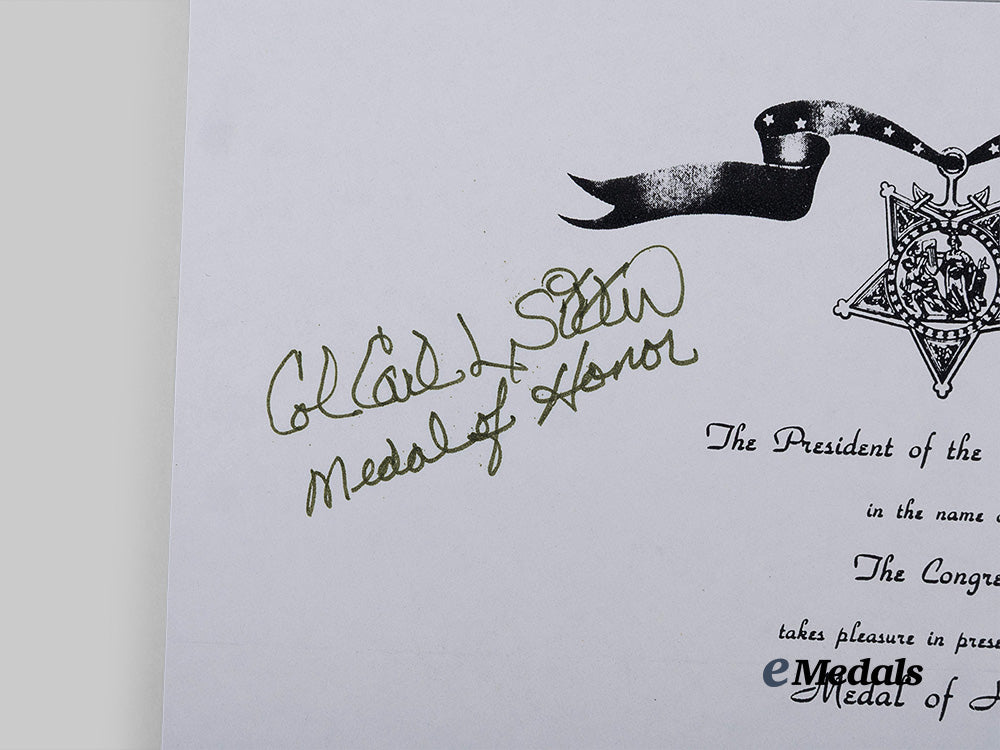 Col Carl L. Sitter
Medal of Honor
The President of the
in the name
The Congre
takes pleasure in prese
eMedals
Medal of H